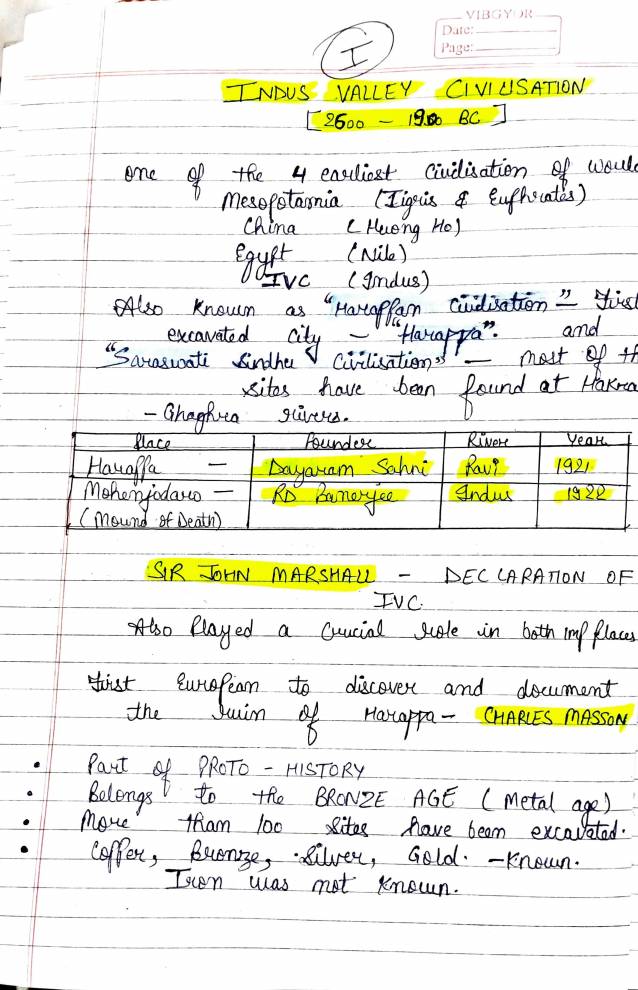 VIBGYOR
Date:
Page:
I
INDUS VALLEY CIVILISATION
[2600 - 1900 BC]
one of the 4 earliest civilisation of would
Mesopotamia (Tigris & Euphrates)
China (Huong Ho)
Egypt (Nile)
IVC (Indus)
Also known as "Harappan civilisation" - First
excavated city - "Harappa". and
"Saraswati Sindhu Civilisation" - most of th
sites have been found at Hakra
- Ghaghra rivers.
Place Founder River Year
Harappa - Dayaram Sahni Ravi 1921
Mohenjodaro - RD Banerjee Indus 1922
(Mound of Death)
SIR JOHN MARSHALL - DECLARATION OF
IVC.
Also Played a crucial role in both imp places
First European to discover and document
the ruin of Harappa - CHARLES MASSON
• Part of PROTO - HISTORY
• Belongs to the BRONZE AGE (Metal age)
• More than 100 sites have been excavated.
• Copper, Bronze, Silver, Gold. - Known.
Iron was not known.